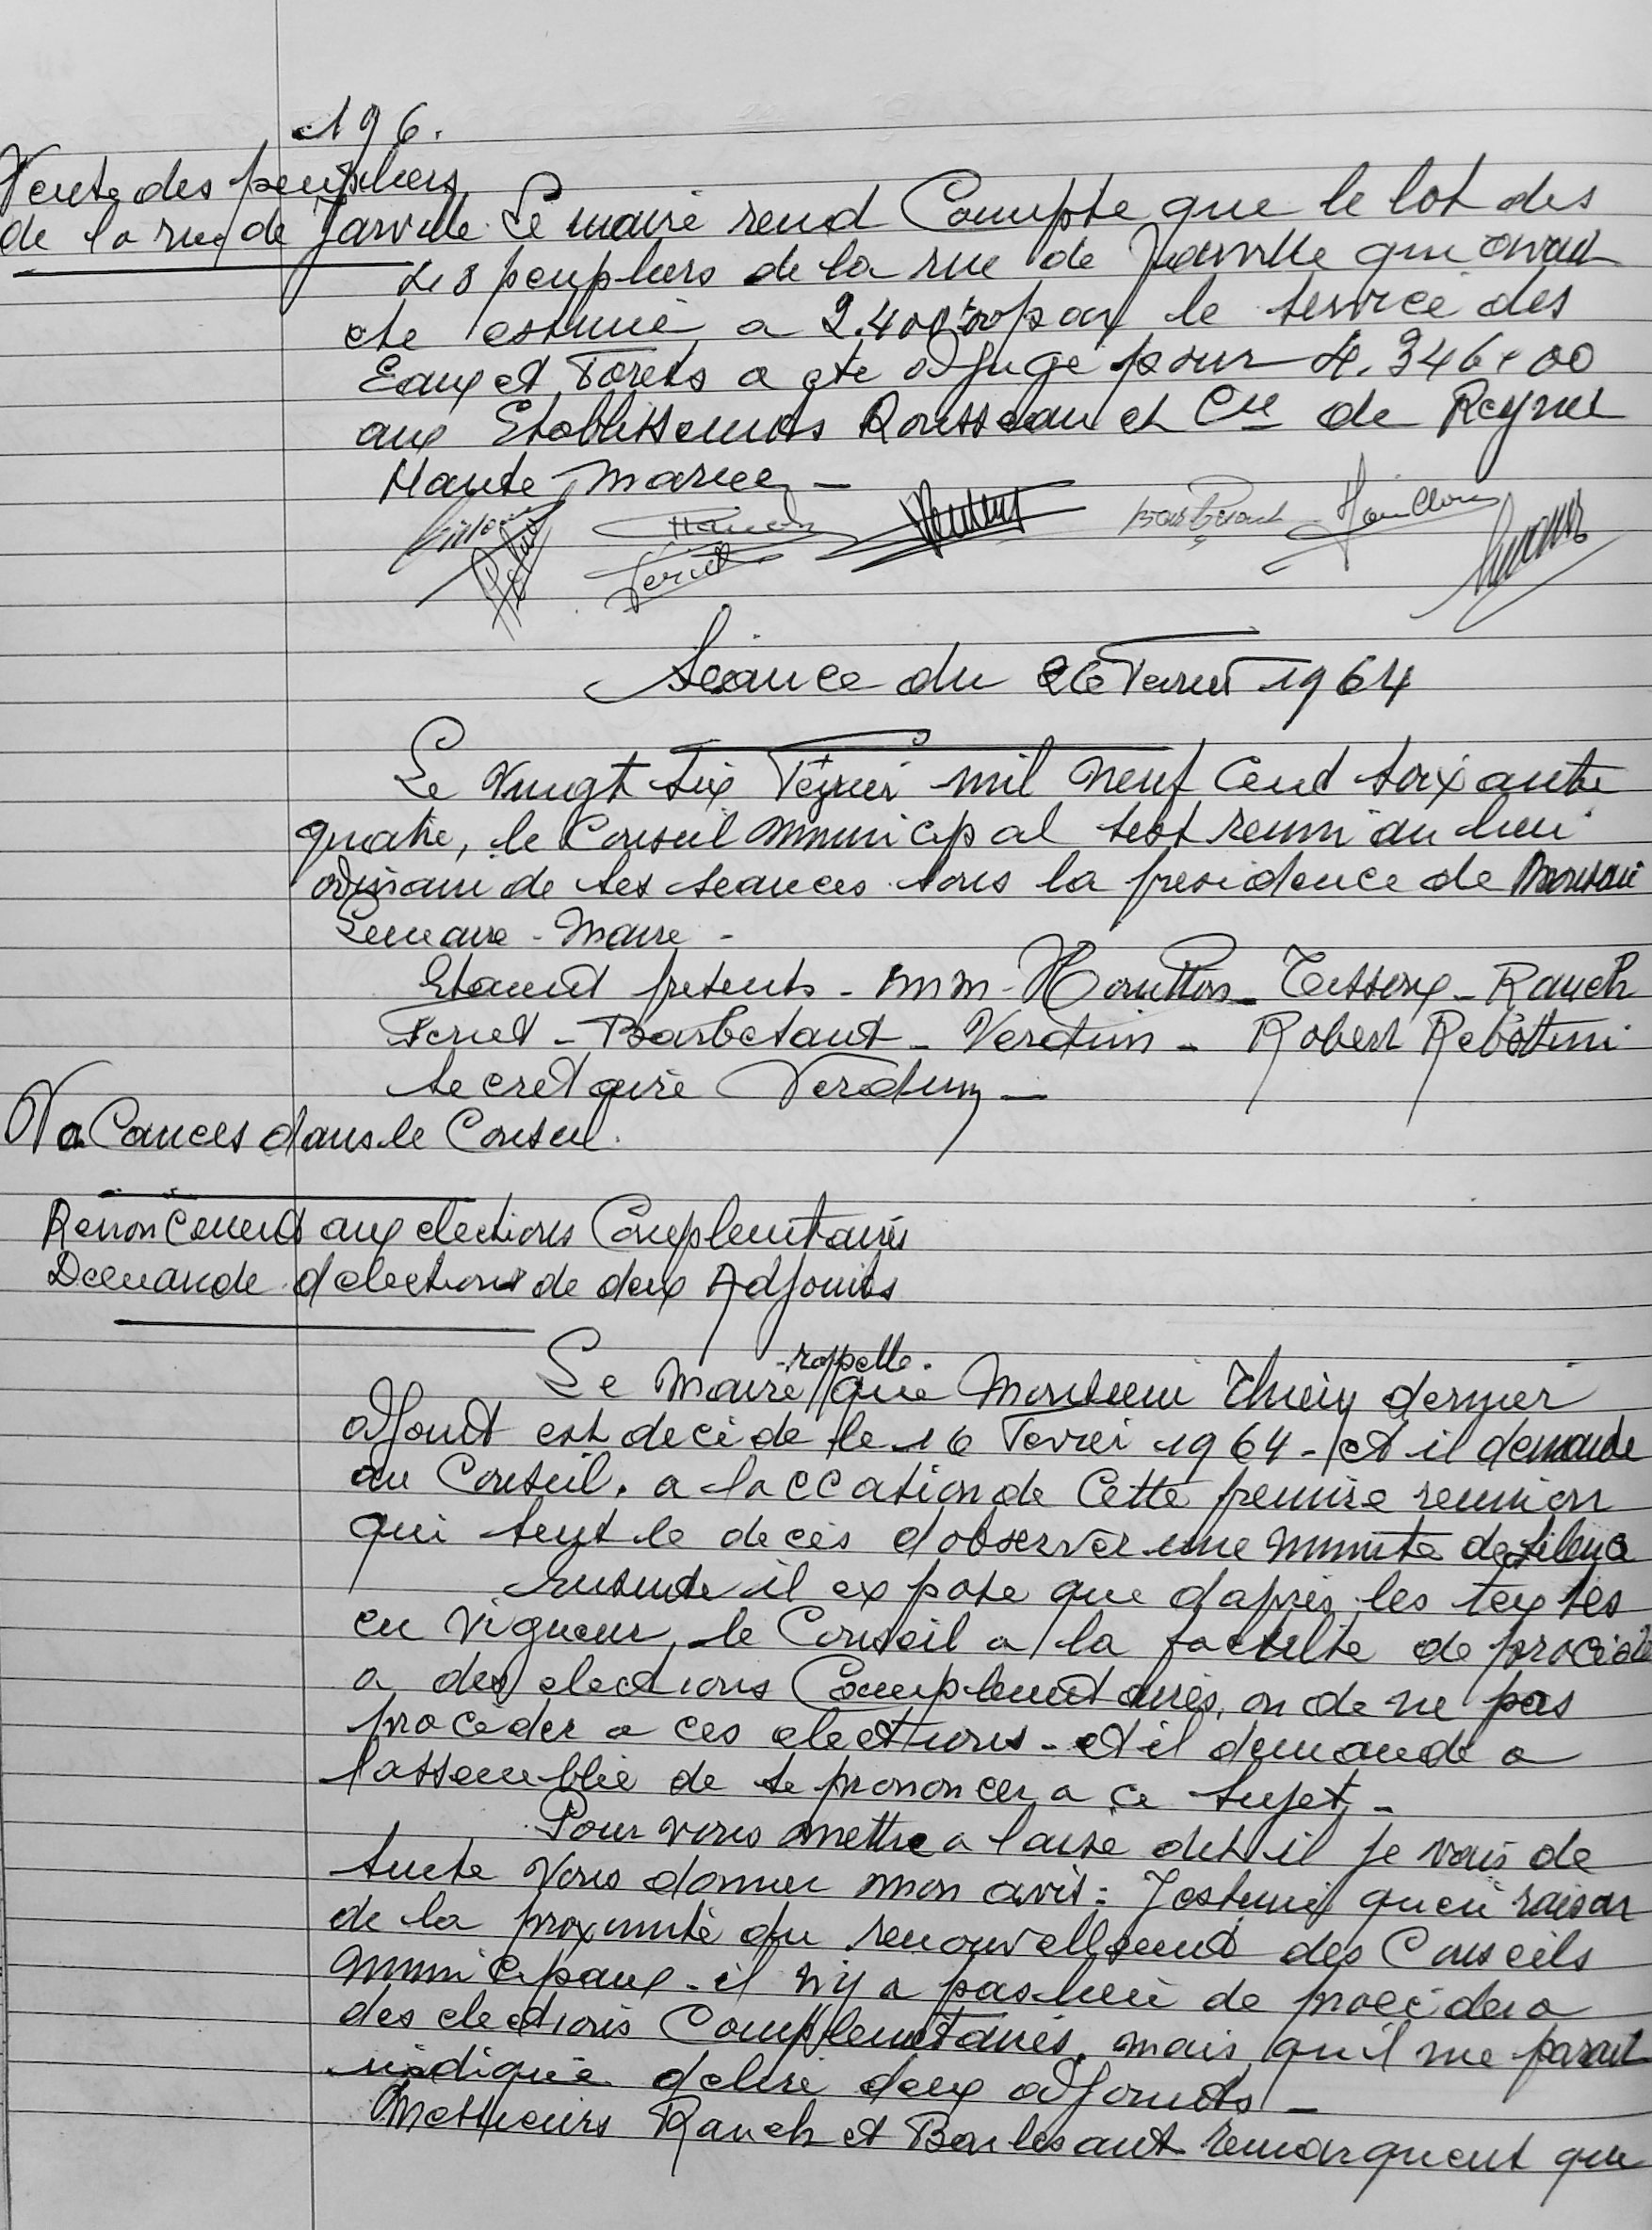 196.
Vente des peupliers
de la rue de Jarville. Le maire rend Compte que le lot des
48 peupliers de la rue de Jarville qui avait
ete estimé a 2.400,00 par le service des
Eaux et Forets a ete adjugé pour 4.346,00
aux Etablissements Rousseau et Cie de Reynel
Haute Marne -
Feriet Verdun Barbezant Houillon
Séance du 26 Fevrier 1964
Le Vingt six Fevrier mil neuf Cent soixante
quatre, le Conseil municipal sest reuni au lieu
ordinaire de ses seances sous la presidence de Monsieur
Lemaire - Maire -
Etaient presents - MM - Houillon - Teisseng - Rauch
Feriet - Barbezant - Verdun - Robert Rebottini
Secretaire Verdun -
Vacances dans le Conseil.
Renoncement aux elections Complementaires
Demande delections de deux Adjoints
rappelle.
Le Maire que Monsieur Thiery dernier
adjoint est decedé le 16 Fevrier 1964 - et il demande
au Conseil. a loccasion de Cette premiere reunion
qui suit le deces dobserver une minute de silence
Ensuite il expose que dapres les textes
en vigueur, le Conseil a la faculté de proceder
a des elections Complementaires, ou de ne pas
proceder a ces elections - et il demande a
lassemblée de se prononcer a ce sujet -
Pour vous mettre a laise dit il je vais de
suite vous donner mon avis : Jestime quen raison
de la proximité du renouvellement des Conseils
municipaux - il ny a pas lieu de proceder a
des elections Complementaires, mais quil me parait
indiqué delire deux adjoints -
Messieurs Rauch et Barbezant remarquent que